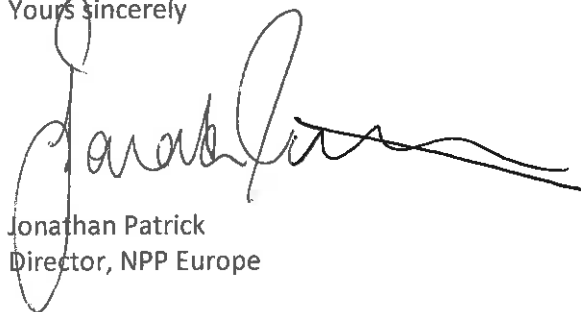 Yours sincerely
Jonathan Patrick
Director, NPP Europe